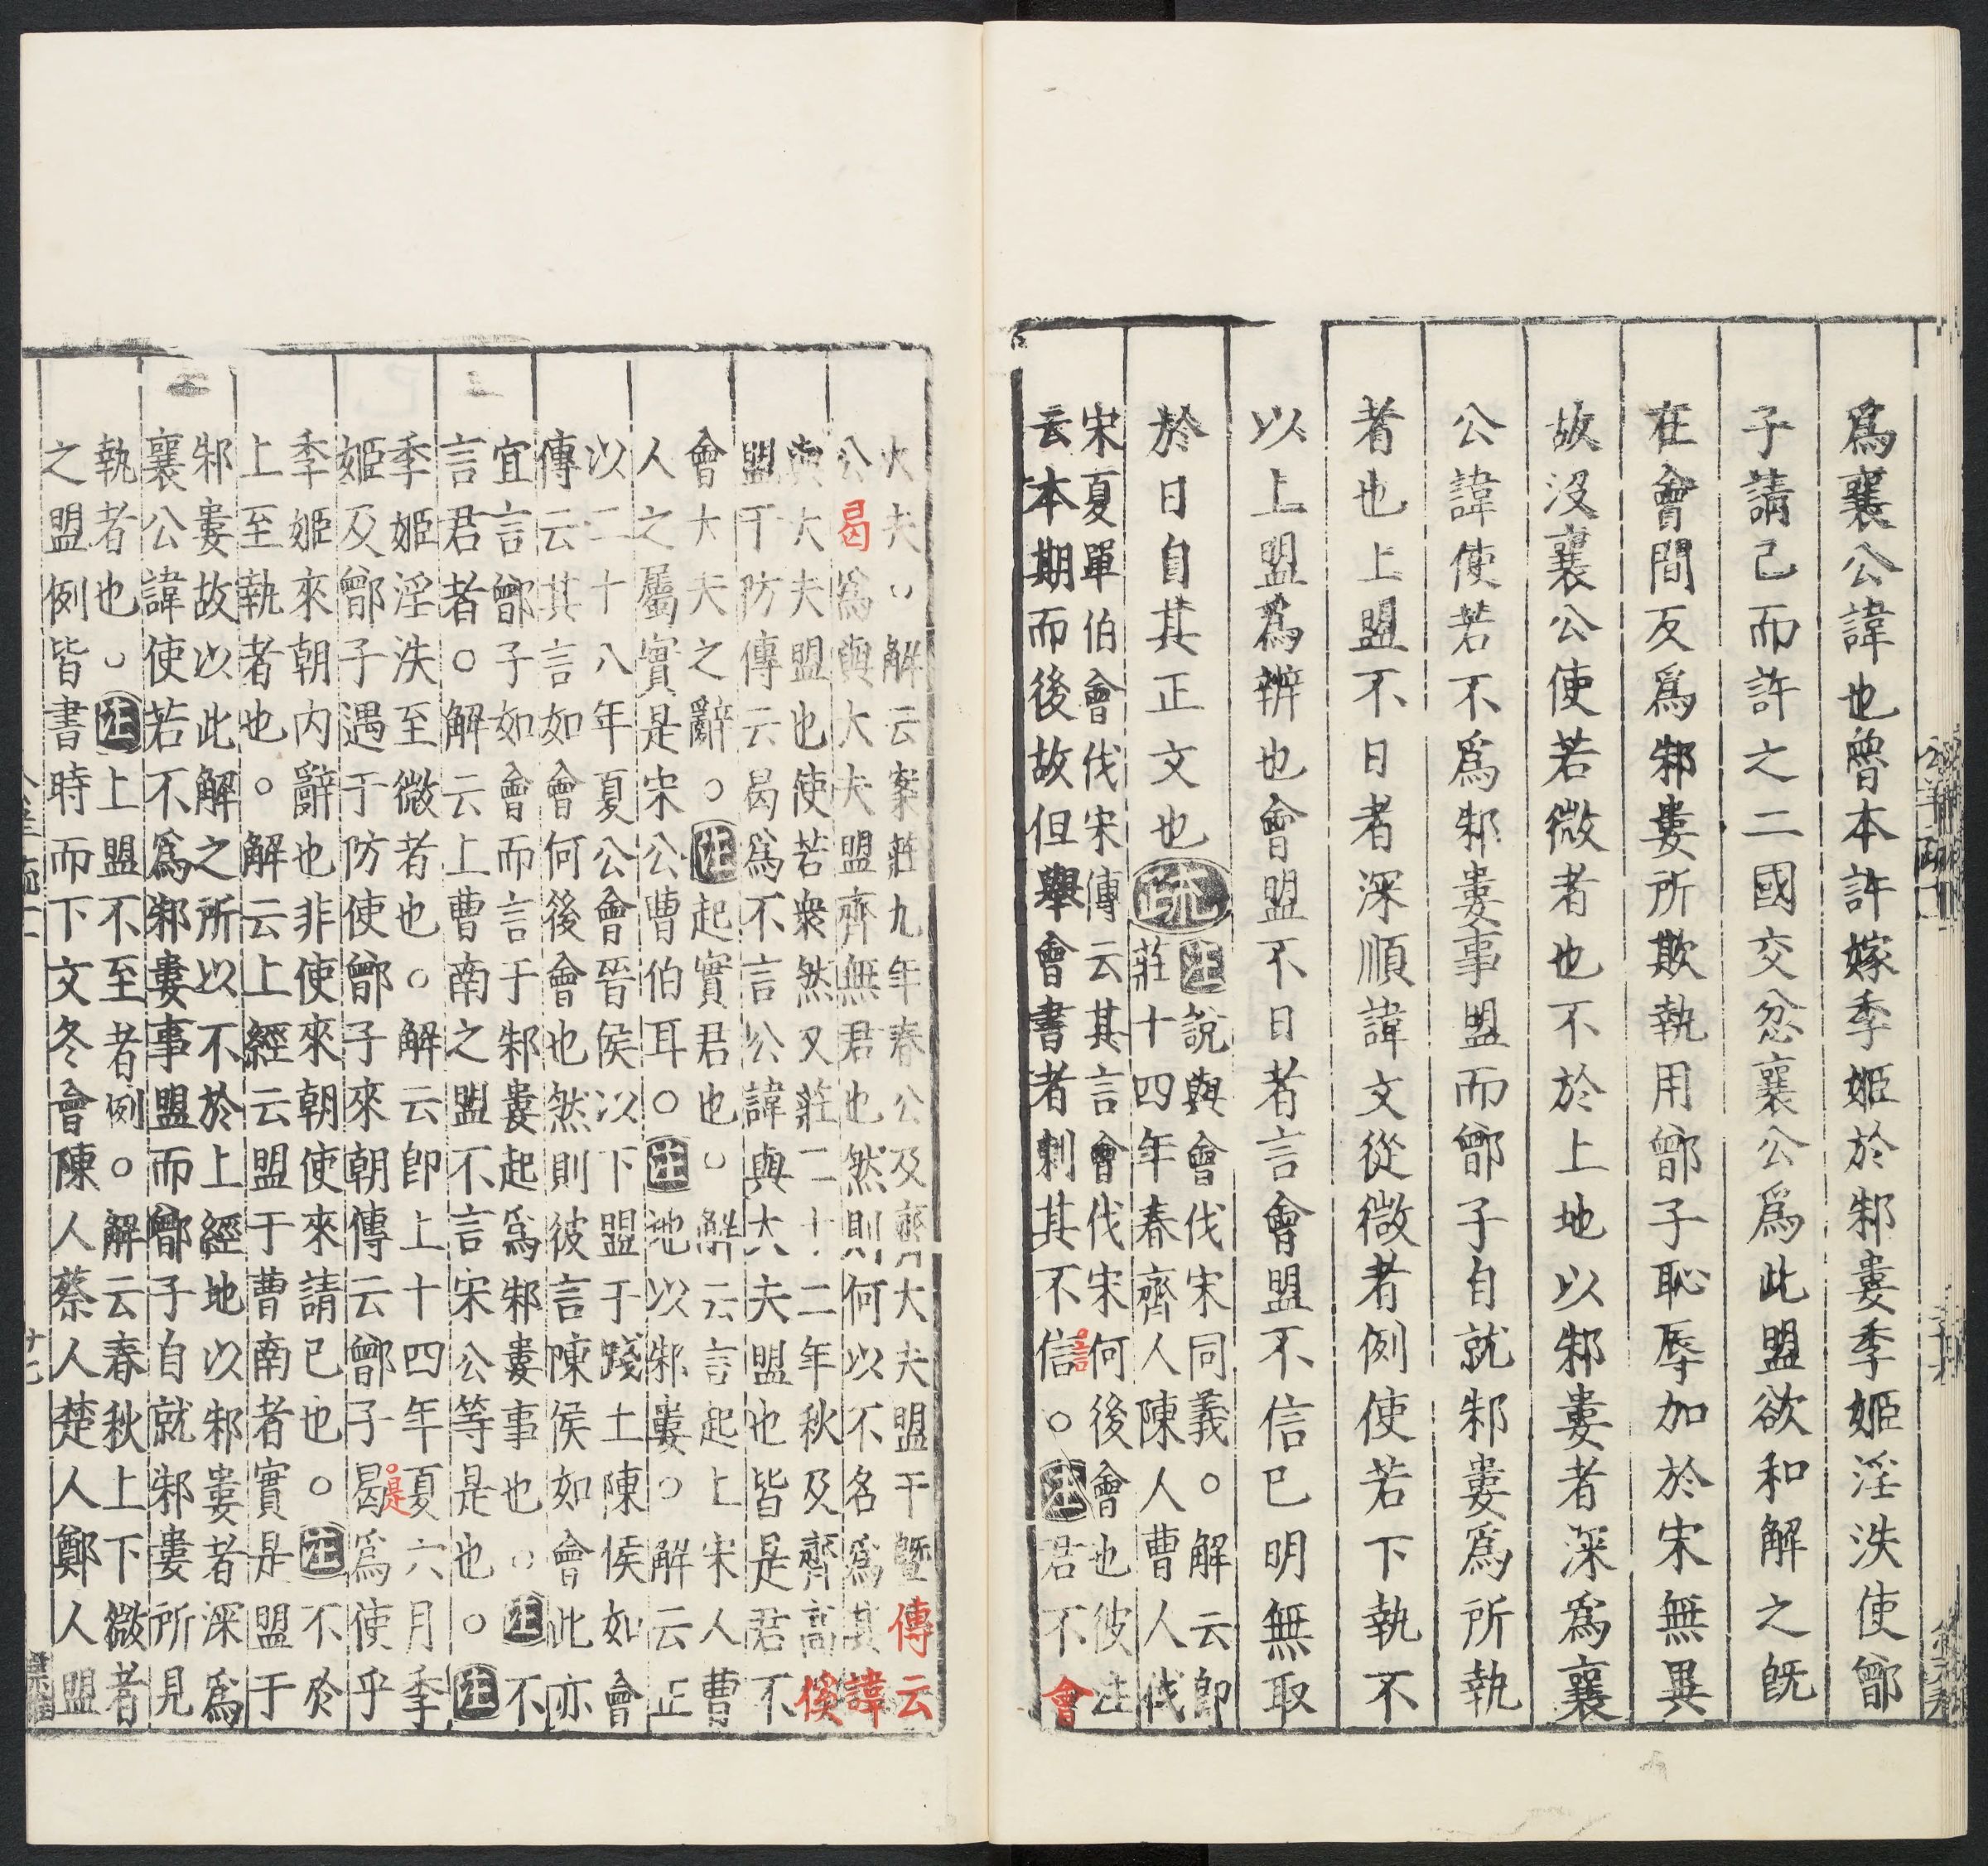 爲襄公諱也曾本許嫁季姬於邾婁季姬淫泆使鄫
子請已而許之二國交忿襄公爲此盟欲和解之旣
在會間反爲邾婁所欺執用鄫子恥辱加於宋無異
故沒襄公使若微者也不於上地以邾婁者深爲襄
公諱使若不爲邾婁事盟而鄫子自就邾婁爲所執
者也上盟不日者深順諱文從微者例使若下執不
以上盟爲辨也會盟不日者言會盟不信已明無取
於日自其正文也
疏
注說與會伐宋同義○解云卽
莊十四年春齊人陳人曹人伐
宋夏單伯會伐宋傳云其言會伐宋何後會也彼注
云本期而後故但舉會書者刺其不信○注君不會
大夫○解云案莊九年春公及齊大夫盟于曁傳云
公曷爲與大夫盟齊無君也然則何以不名爲其諱
與大夫盟也使若衆然又莊二十二年秋及齊高傒
盟于防傳云曷爲不言公諱與大夫盟也皆是君不
會大夫之辭○注起實君也○解云言起上宋人曹
人之屬實是宋公曹伯耳○注地以邾婁○解云正
以二十八年夏公會晉侯以下盟于踐土陳侯如會
傳云其言如會何後會也然則彼言陳侯如會此亦
宜言鄫子如會而言于邾婁起爲邾婁事也○注不
言君者○解云上曹南之盟不言宋公等是也○注
季姬淫泆至微者也○解云卽上十四年夏六月季
姬及鄫子遇于防使鄫子來朝傳云鄫子曷爲使乎
季姬來朝内辭也非使來朝使來請已也○注不於
上至執者也○解云上經云盟于曹南者實是盟于
邾婁故以此解之所以不於上經地以邾婁者深爲
襄公諱使若不爲邾婁事盟而鄫子自就邾婁所見
執者也○注上盟不至者例○解云春秋上下微者
之盟例皆書時而下文冬會陳人蔡人楚人鄭人盟